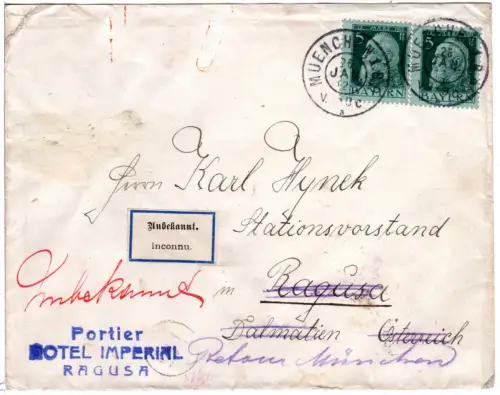 MUENCHEN
BAYERN
5
5
BAYERN
Herrn Karl Hynek
Stationsvorstand
Unbekannt.
inconnu.
Unbekannt
in Ragusa
Dalmatien Österreich
Retour München
Portier
HOTEL IMPERIAL
RAGUSA